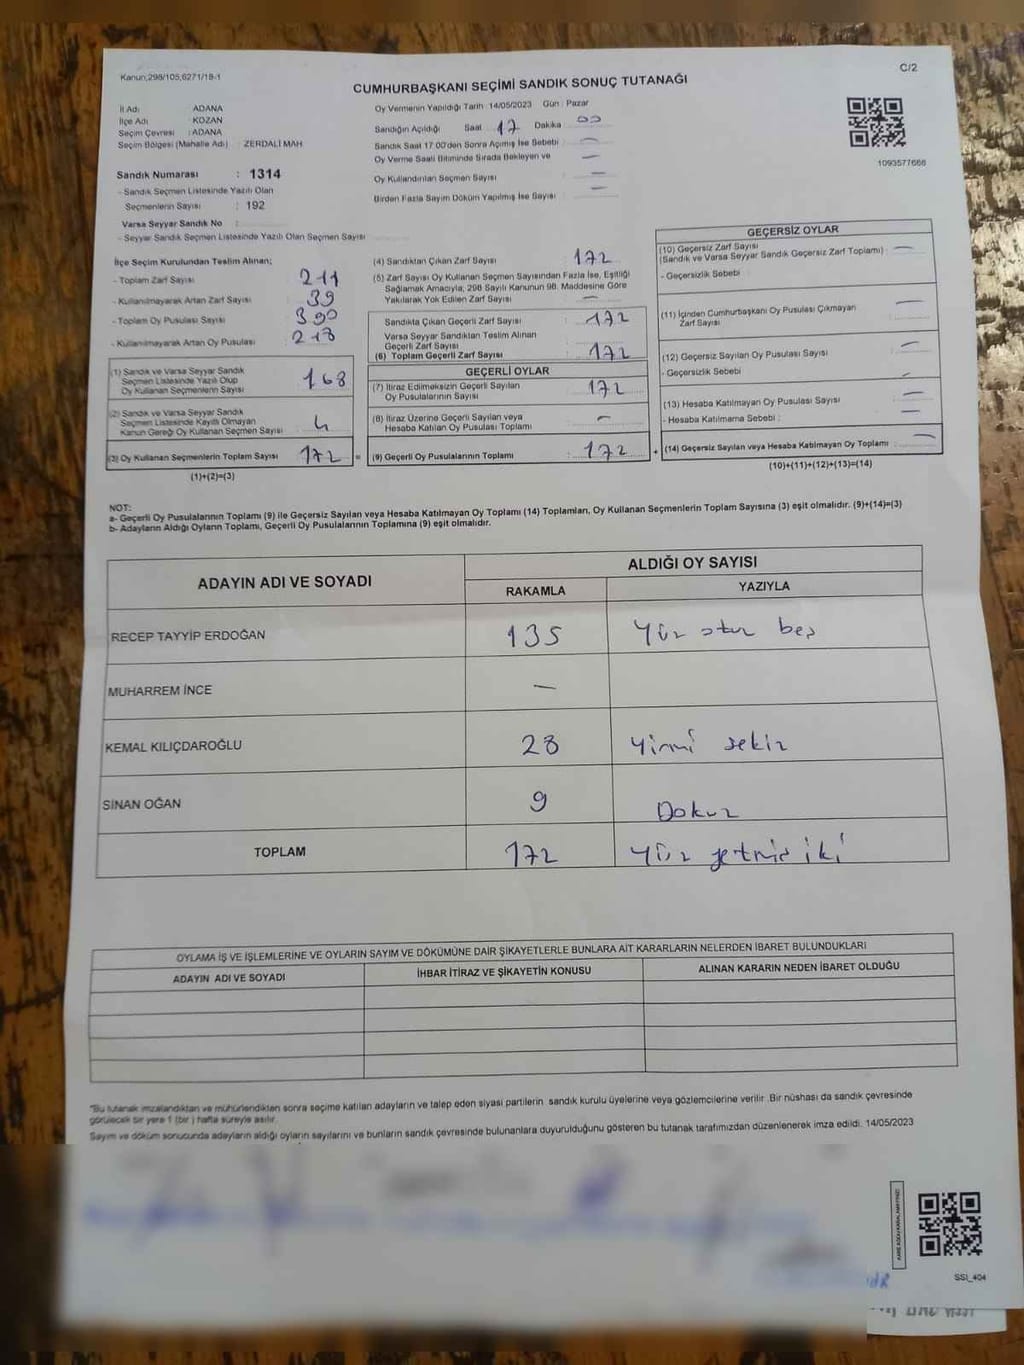 Kanun;298/105,6271/18-1
C/2
CUMHURBAŞKANI SEÇİMİ SANDIK SONUÇ TUTANAĞI
İl Adı : ADANA
İlçe Adı : KOZAN
Seçim Çevresi : ADANA
Seçim Bölgesi (Mahalle Adı) : ZERDALİ MAH.
Sandık Numarası : 1314
- Sandık Seçmen Listesinde Yazılı Olan
Seçmenlerin Sayısı : 192
Varsa Seyyar Sandık No :
- Seyyar Sandık Seçmen Listesinde Yazılı Olan Seçmen Sayısı
Oy Vermenin Yapıldığı Tarih :14/05/2023 Gün : Pazar
Sandığın Açıldığı Saat 17 Dakika 00
Sandık Saat 17:00'den Sonra Açımış İse Sebebi : —
Oy Verme Saati Bitiminde Sırada Bekleyen ve —
Oy Kullandırılan Seçmen Sayısı —
Birden Fazla Sayım Döküm Yapılmış İse Sayısı : —
1093577666
İlçe Seçim Kurulundan Teslim Alınan;
- Toplam Zarf Sayısı : 211
- Kullanılmayarak Artan Zarf Sayısı : 39
- Toplam Oy Pusulası Sayısı : 390
- Kullanılmayarak Artan Oy Pusulası : 218
(1) Sandık ve Varsa Seyyar Sandık
Seçmen Listesinde Yazılı Olup
Oy Kullanan Seçmenlerin Sayısı : 168
(2) Sandık ve Varsa Seyyar Sandık
Seçmen Listesinde Kayıtlı Olmayan
Kanun Gereği Oy Kullanan Seçmen Sayısı : 4
(3) Oy Kullanan Seçmenlerin Toplam Sayısı : 172
(1)+(2)=(3)
(4) Sandıktan Çıkan Zarf Sayısı : 172
(5) Zarf Sayısı Oy Kullanan Seçmen Sayısından Fazla İse, Eşitliği
Sağlamak Amacıyla, 298 Sayılı Kanunun 98. Maddesine Göre
Yakılarak Yok Edilen Zarf Sayısı : —
Sandıkta Çıkan Geçerli Zarf Sayısı : 172
Varsa Seyyar Sandıktan Teslim Alınan
Geçerli Zarf Sayısı :
(6) Toplam Geçerli Zarf Sayısı : 172
GEÇERLİ OYLAR
(7) İtiraz Edilmeksizin Geçerli Sayılan
Oy Pusulasının Sayısı : 172
(8) İtiraz Üzerine Geçerli Sayılan veya
Hesaba Katılan Oy Pusulası Toplamı : —
(9) Geçerli Oy Pusulalarının Toplamı : 172
GEÇERSİZ OYLAR
(10) Geçersiz Zarf Sayısı
(Sandık ve Varsa Seyyar Sandık Geçersiz Zarf Toplamı) : —
- Geçersizlik Sebebi :
(11) İçinden Cumhurbaşkanı Oy Pusulası Çıkmayan
Zarf Sayısı : —
(12) Geçersiz Sayılan Oy Pusulası Sayısı : —
- Geçersizlik Sebebi : —
(13) Hesaba Katılmayan Oy Pusulası Sayısı : —
- Hesaba Katılmama Sebebi : —
(14) Geçersiz Sayılan veya Hesaba Katılmayan Oy Toplamı : —
(10)+(11)+(12)+(13)=(14)
NOT:
a- Geçerli Oy Pusulalarının Toplamı (9) ile Geçersiz Sayılan veya Hesaba Katılmayan Oy Toplamı (14) Toplamları, Oy Kullanan Seçmenlerin Toplam Sayısına (3) eşit olmalıdır. (9)+(14)=(3)
b- Adayların Aldığı Oyların Toplamı, Geçerli Oy Pusulalarının Toplamına (9) eşit olmalıdır.
ADAYIN ADI VE SOYADI
ALDIĞI OY SAYISI
RAKAMLA YAZIYLA
RECEP TAYYİP ERDOĞAN 135 Yüz otuz beş
MUHARREM İNCE —
KEMAL KILIÇDAROĞLU 28 Yirmi sekiz
SİNAN OĞAN 9 Dokuz
TOPLAM 172 Yüz yetmiş iki
OYLAMA İŞ VE İŞLEMLERİNE VE OYLARIN SAYIM VE DÖKÜMÜNE DAİR ŞİKAYETLERLE BUNLARA AİT KARARLARIN NELERDEN İBARET BULUNDUKLARI
ADAYIN ADI VE SOYADI İHBAR İTİRAZ VE ŞİKAYETİN KONUSU ALINAN KARARIN NEDEN İBARET OLDUĞU
*Bu tutanak imzalandıktan ve mühürlendikten sonra seçime katılan adayların ve talep eden siyasi partilerin sandık kurulu üyelerine veya gözlemcilerine verilir .Bir nüshası da sandık çevresinde
görülecek bir yere 1 (bir ) hafta süreyle asılır.
Sayım ve döküm sonucunda adayların aldığı oyların sayılarını ve bunların sandık çevresinde bulunanlara duyurulduğunu gösteren bu tutanak tarafımızdan düzenlenerek imza edildi. 14/05/2023
SSI_404